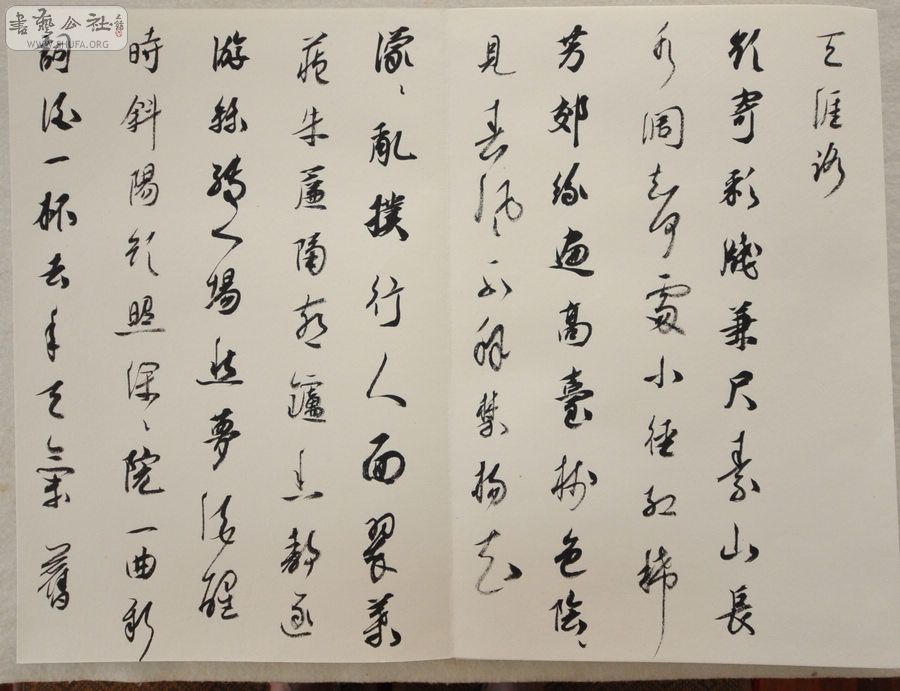 天涯路
欲寄彩牋兼尺素山長
水闊知何處小徑紅稀
芳郊綠遍高臺樹色陰〻
見春風不解禁楊花
濛〻亂撲行人面翠葉
藏朱簾隔燕鑪香靜逐
游絲轉一場愁夢酒醒
時斜陽欲照深〻院一曲新
詞酒一杯去年天氣舊
書藝公社
WWW.SHUFA.ORG